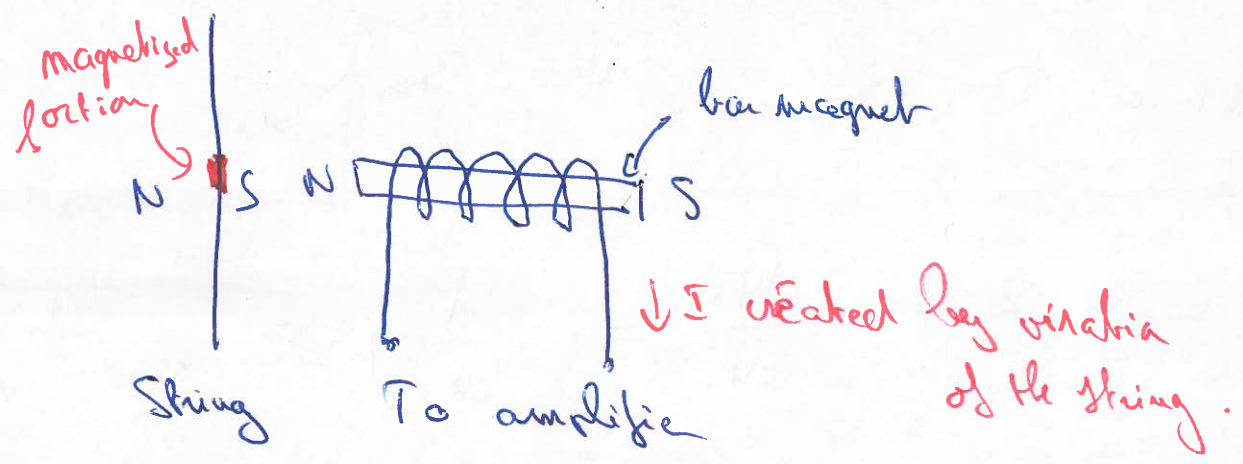 magnetized
portion
bar magnet
N S N S
↓ I created by vibration
of the string.
String
To amplifier